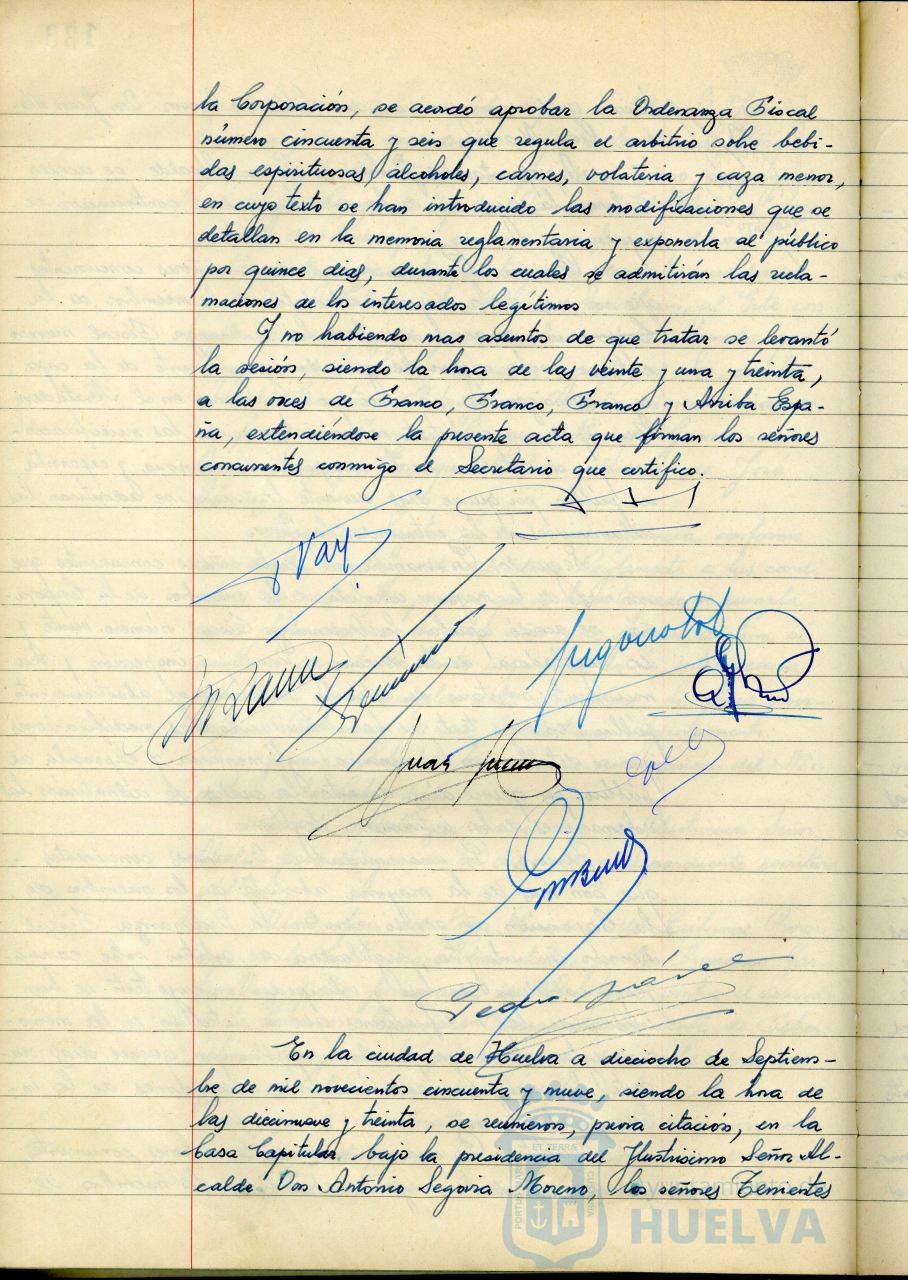 la Corporación, se acordó aprobar la Ordenanza Fiscal
número cincuenta y seis que regula el arbitrio sobre bebi-
das espirituosas, alcoholes, carnes, volateria y caza menor,
en cuyo texto se han introducido las modificaciones que se
detallan en la memoria reglamentaria y exponerla al público
por quince dias, durante los cuales se admitirán las recla-
maciones de los interesados legítimos
Y no habiendo mas asuntos de que tratar se levantó
la sesión, siendo la hora de las veinte y una y treinta,
a las voces de Franco, Franco, Franco y Arriba Espa-
ña, extendiéndose la presente acta que firman los señores
concurrentes conmigo el Secretario que certifico.
Juan
Pedro Suárez
En la ciudad de Huelva a dieciocho de Septiem-
bre de mil novecientos cincuenta y nueve, siendo la hora de
las diecinueve y treinta, se reunieron, previa citación, en la
Casa Capitular bajo la presidencia del Ilustrisimo Señor Al-
calde Don Antonio Segovia Moreno, los señores Tenientes
HUELVA